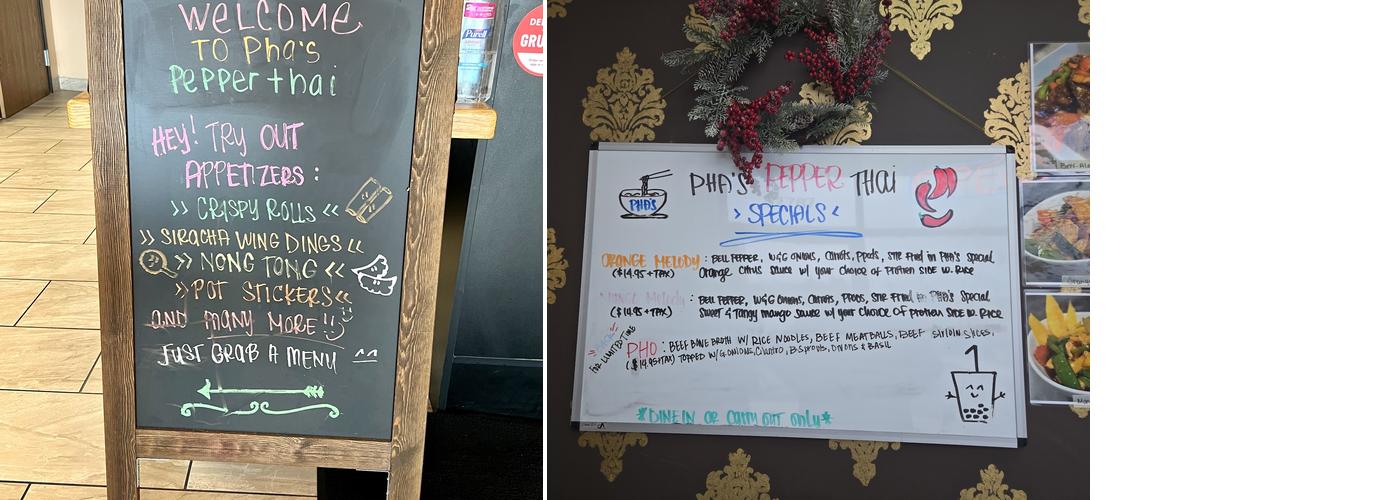 WELCOME
TO Pha's
Pepper thai
HEY! TRY OUT
APPETIZERS :
>> CRISPY ROLLS <<
>> SIRACHA WING DINGS <<
>> NONG TONG <<
>> POT STICKERS <<
AND MANY MORE !!
JUST GRAB A MENU ^^
Purell
PHA'S PEPPER THAI
PHA'S
> SPECIALS <
ORANGE MELODY : BELL PEPPER, W&G ONIONS, CARROTS, PPODS, STIR FRIED in PHA'S SPECIAL
($14.95 + TAX) Orange Citrus sauce w/ your choice of protien SIDE W. RICE
Melody : BELL PEPPER, W&G Onions, CARROTS, PPODS, STIR FRIED in PHA'S Special
($14.95 + TAX) Sweet & Tangy mango sauce w/ your choice of protien SIDE W. RICE
FOR LIMITED TIME
PHO : BEEF BONE BROTH W/ RICE NOODLES, BEEF MEATBALLS, BEEF SIRLOIN SLICES,
($14.95+TAX) TOPPED W/ G.ONIONS, Cilantro, B.Sprouts, ONIONS & BASIL
*DINE IN OR CARRY OUT ONLY*